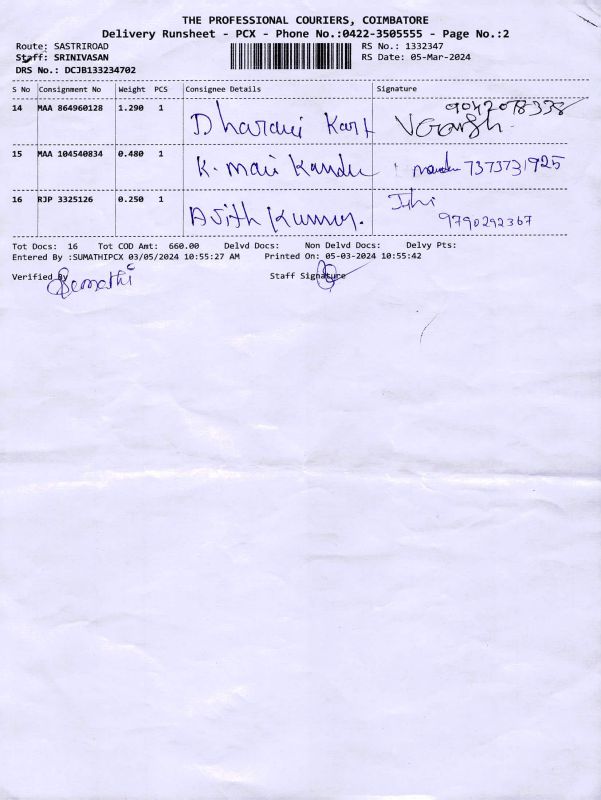 THE PROFESSIONAL COURIERS, COIMBATORE
Delivery Runsheet - PCX - Phone No.:0422-3505555 - Page No.:2
Route: SASTRIROAD RS No.: 1332347
Staff: SRINIVASAN RS Date: 05-Mar-2024
DRS No.: DCJB133234702
S No Consignment No Weight PCS Consignee Details Signature
14 MAA 864960128 1.290 1 Dharani Kart
15 MAA 104540834 0.480 1 K. Mari Kandu 7373731925
16 RJP 3325126 0.250 1 Ajith Kumar. 9790292367
Tot Docs: 16 Tot COD Amt: 660.00 Delvd Docs: Non Delvd Docs: Delvy Pts:
Entered By :SUMATHIPCX 03/05/2024 10:55:27 AM Printed On: 05-03-2024 10:55:42
Verified By Sumathi Staff Signature